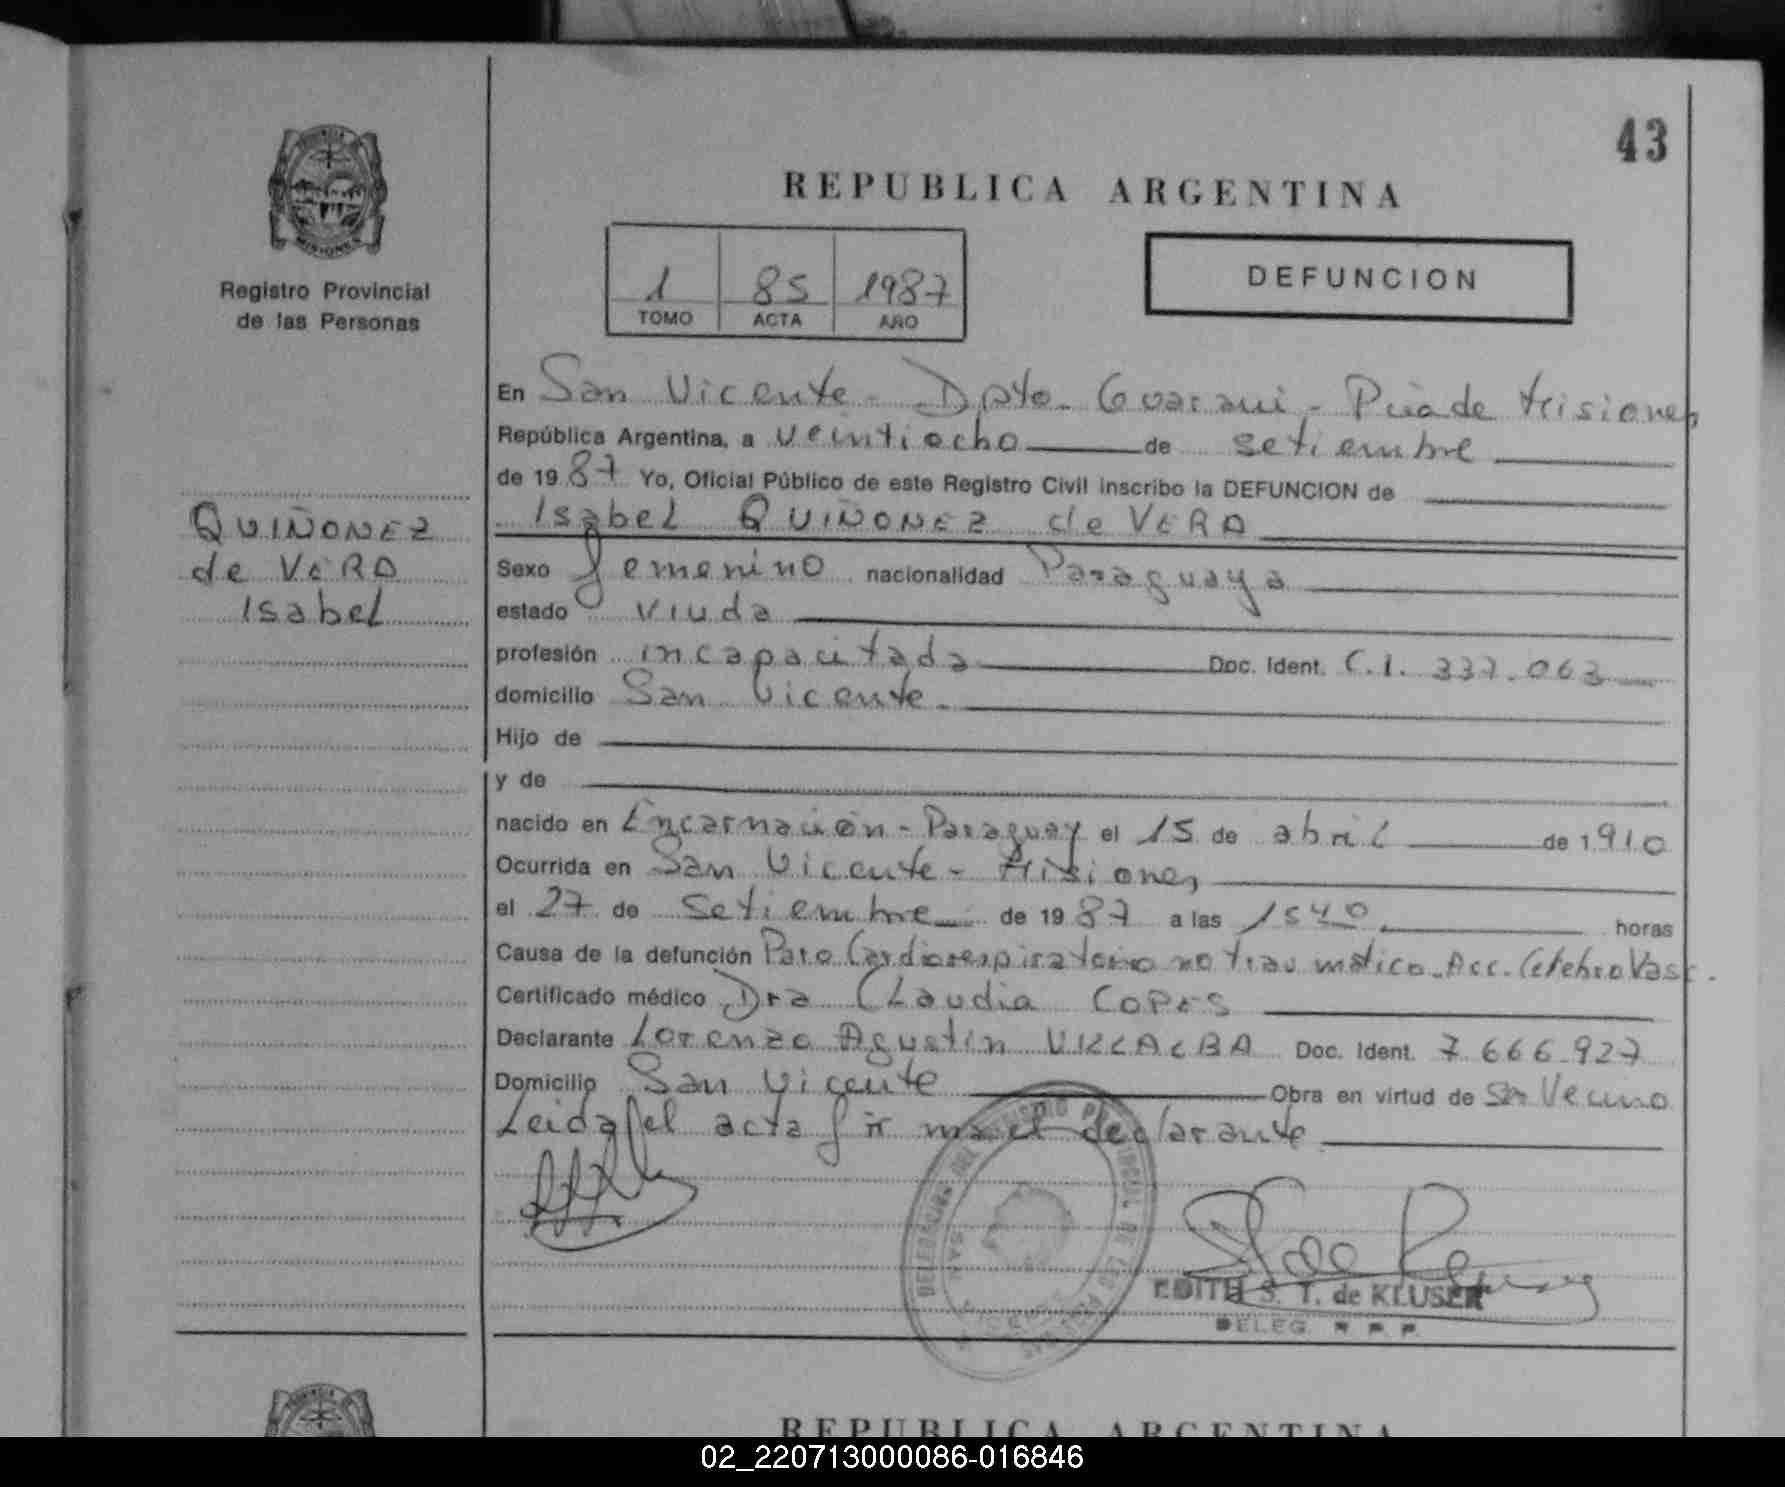 43
REPUBLICA ARGENTINA
MISIONES
Registro Provincial
de las Personas
1 85 1987
TOMO ACTA AÑO
DEFUNCION
QUIÑONEZ
de VERA
Isabel
En San Vicente - Dpto. Guarani - Pcia de Misiones
República Argentina, a veintiocho de setiembre
de 19 87 Yo, Oficial Público de este Registro Civil inscribo la DEFUNCION de
Isabel QUIÑONEZ de VERA
Sexo femenino nacionalidad Paraguaya
estado viuda
profesión incapacitada Doc. Ident. C.I. 337.063
domicilio San Vicente.
Hijo de
y de
nacido en Encarnación - Paraguay el 15 de abril de 1910
Ocurrida en San Vicente - Misiones
el 27 de setiembre de 19 87 a las 1540 horas
Causa de la defunción Paro Cardiorespiratorio no traumático. Acc. Cerebro Vasc.
Certificado médico Dra Claudia COPES
Declarante Lorenzo Agustín VILLALBA Doc. Ident. 7.666.927
Domicilio San Vicente Obra en virtud de ser Vecino
Leida el acta firma el declarante
EDITH S. T. de KLUSER
DELEG. R. P. P.
REPUBLICA ARGENTINA
02_220713000086-016846